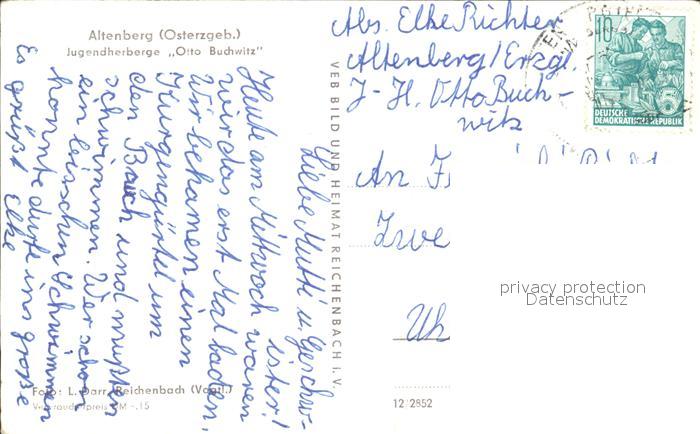 Altenberg (Osterzgeb.)
Jugendherberge „Otto Buchwitz"
Liebe Mutti u. Geschw-
ister!
Heute am Mittwoch waren
wir das erst Mal baden.
Wir bekamen einen
den Bauch und mußten
schwimmen. Wer schon
ein bisschen Schwimmen
konnte durfte ins große
Es grüßt Elke
Foto: L. Darr, Reichenbach (Vogtl.)
Verbraucherpreis DM -.15
VEB BILD UND HEIMAT REICHENBACH i. V.
Abs. Elke Richter
Altenberg/Erzg.
J-H. Otto Buch-
witz
An
Zwe
Uh
12/2852
10
DEUTSCHE
DEMOKRATISCHE REPUBLIK
5
privacy protection
Datenschutz